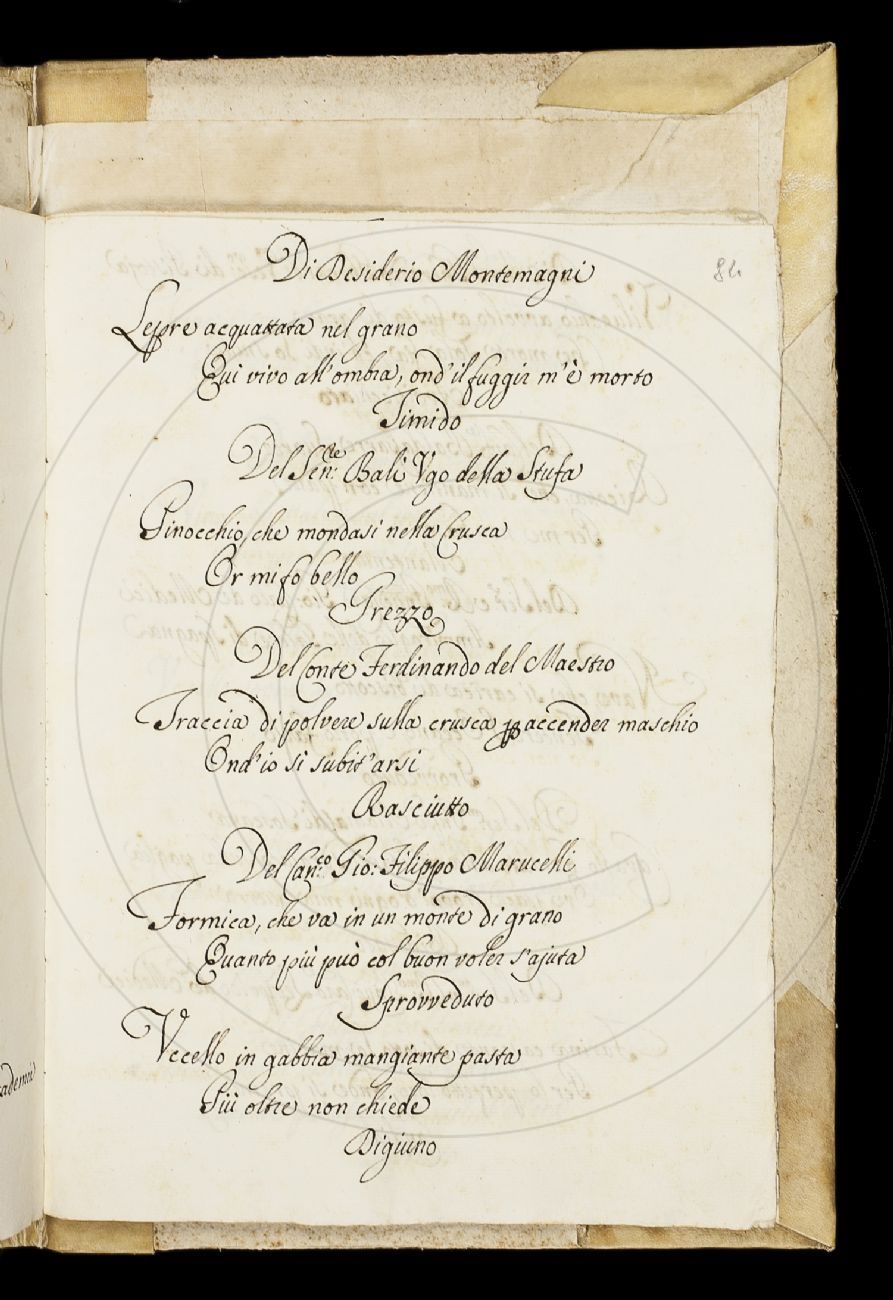 82.
Di Desiderio Montemagni
Lepre acquattata nel grano
Qui vivo all'ombra, ond'il fuggir m'è morto
Timido
Del Sen:re Balì Vgo della Stufa
Pinocchio, che mondasi nella Crusca
Or mi fo bello
Grezzo
Del Conte Ferdinando del Maestro
Traccia di polvere sulla crusca p accender maschio
Ond'io sì subit'arsi
Rasciutto
Del Can:co Gio: Filippo Marucelli
Formica, che va in un monte di grano
Quanto più può col buon voler s'ajuta
Sprovveduto
Vccello in gabbia mangiante pasta
Più oltre non chiede
Digiuno